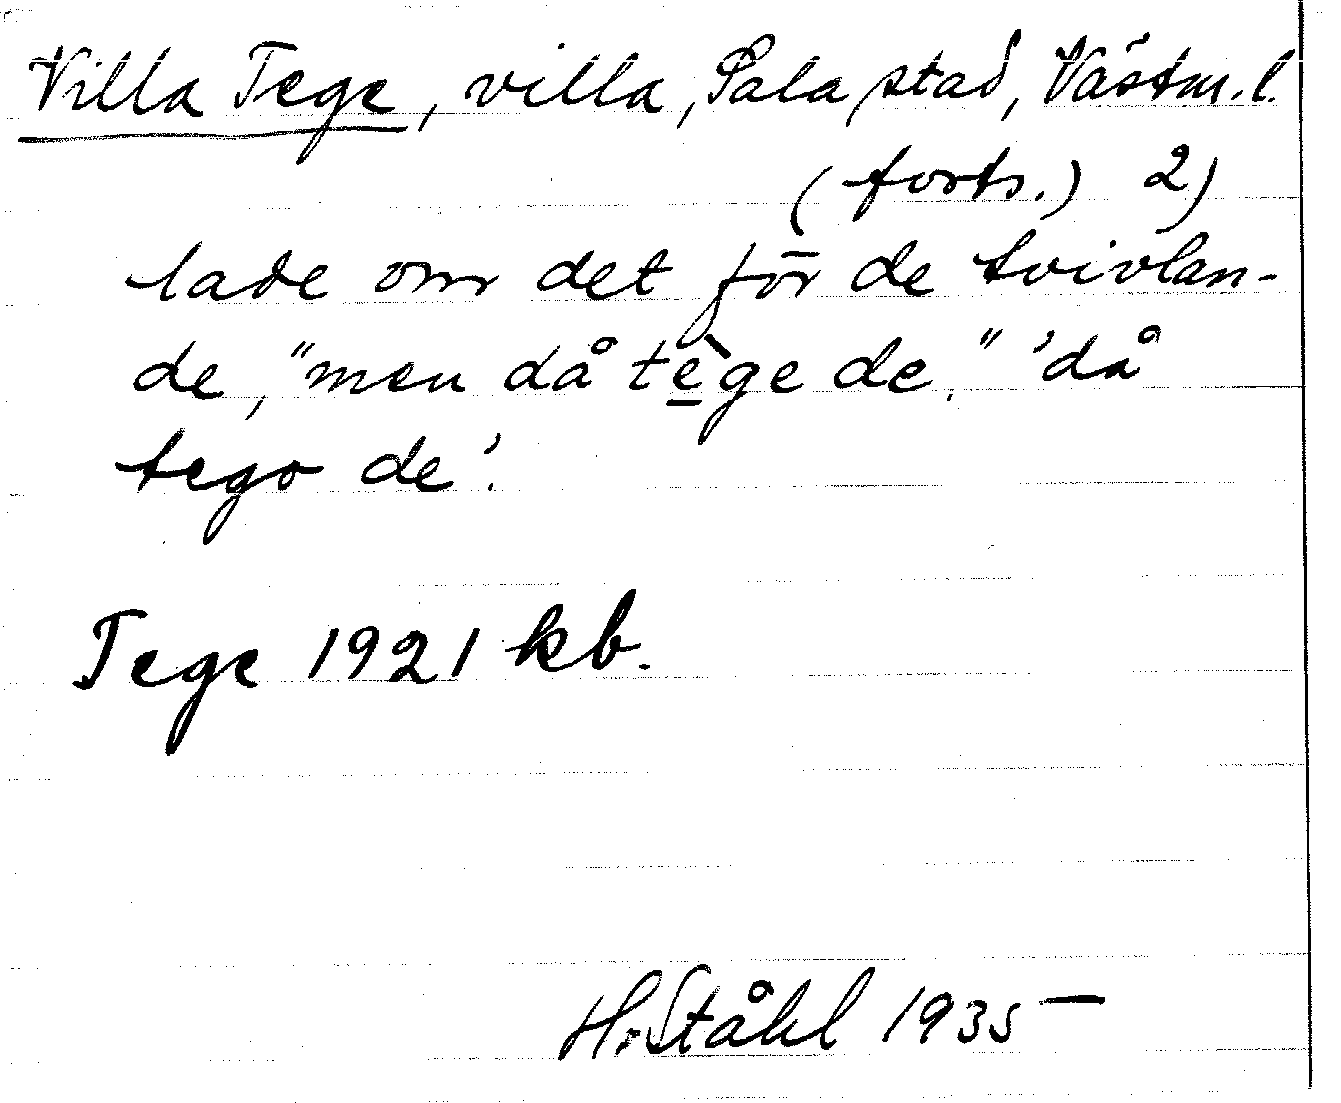 Villa Tege, villa, Sala stad, Västm. l.
(forts.) 2)
lade om det för de tvivlan-
de, "men då tège de." 'då
tego de'.
Tege 1921 kb.
H. Ståhl 1935